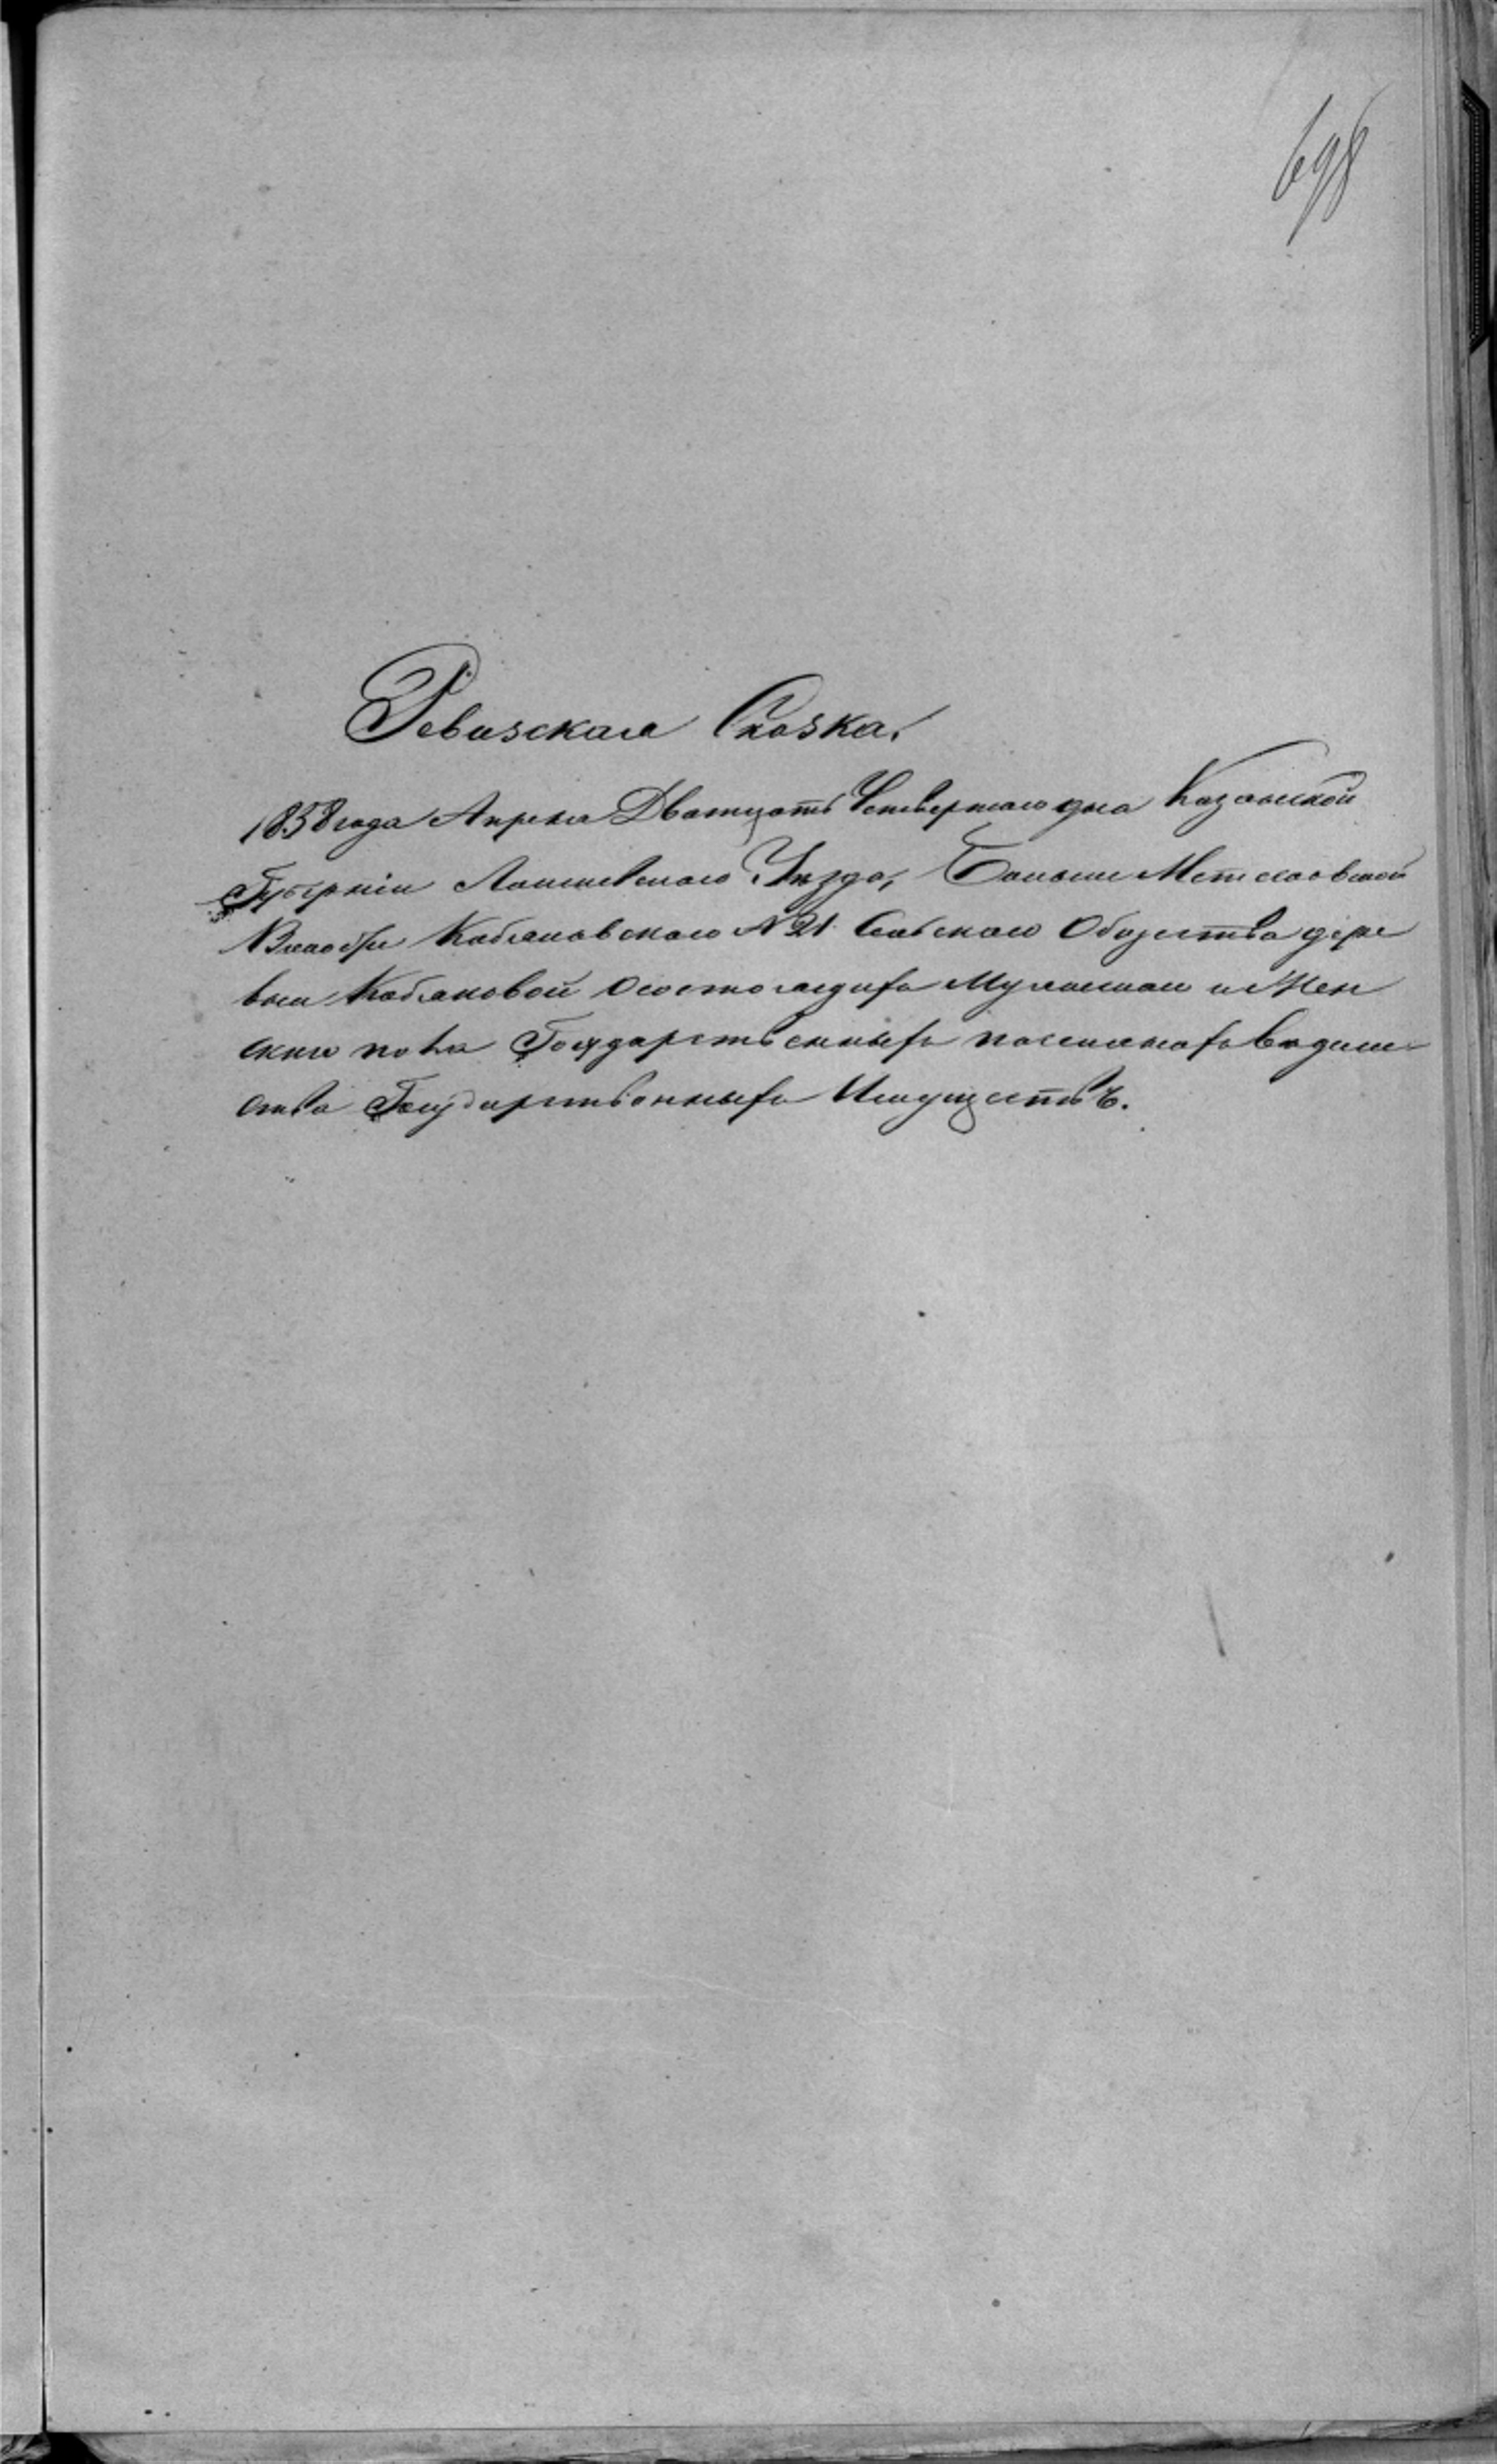 698
Ревизская Сказка.
1858 года Апреля Дватцать Четвертаго дня Казанской
Губерніи Лаишевскаго Уѣзда,
Волости Кабановскаго № 21 Сельскаго Общества дере
вни Кабановой о состоящихъ Мужскаго и Жен
скаго пола Государственныхъ поселянахъ вѣдом
ства Государственныхъ Имуществъ.